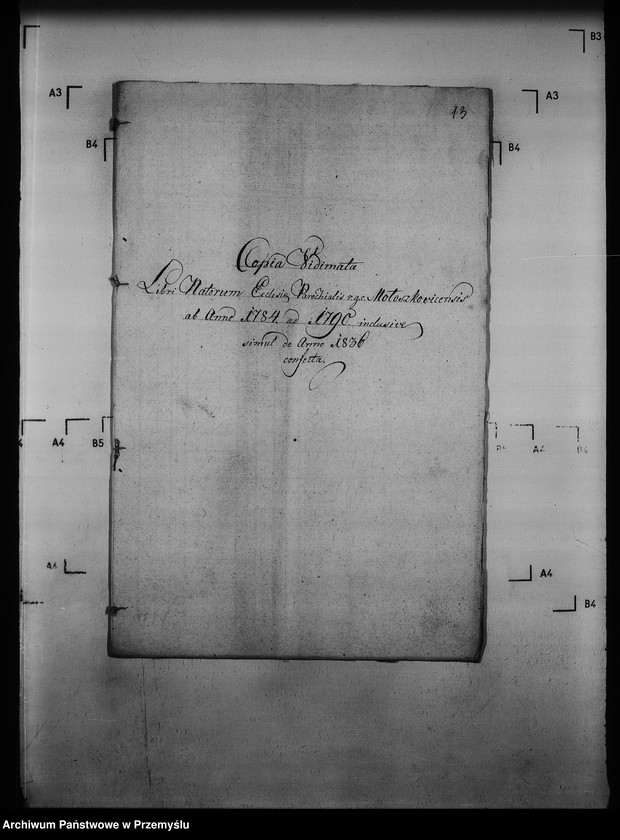 B3
A3
A3
13
B4
B4
Copia Vidimata
Libri Natorum Eclesiæ Parochialis r.g.c. Motoszkovicensis
ab Anno 1784 ad 1790 inclusive
simul de Anno 1836
confecta.
A4
B5
A4
B4
A4
A4
B4
Archiwum Państwowe w Przemyślu